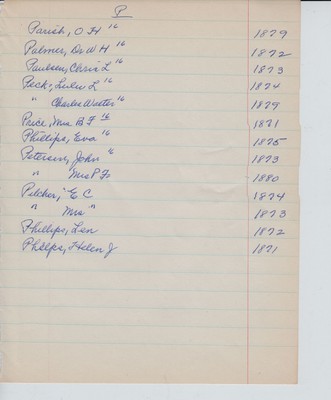 P
Parish, O H 16 1879
Palmer, Dr W H 16 1872
Paulsen, Chris L 16 1873
Peck, Lulu L 16 1874
" Charles Wester 16 1879
Price, Mrs B F 16 1871
Phillips, Eva 16 1875
Petersen, John 16 1873
" Mrs P Fr 1880
Pilcher, E C 1874
" Mrs " 1873
Phillips, Len 1872
Phelps, Helen J 1871